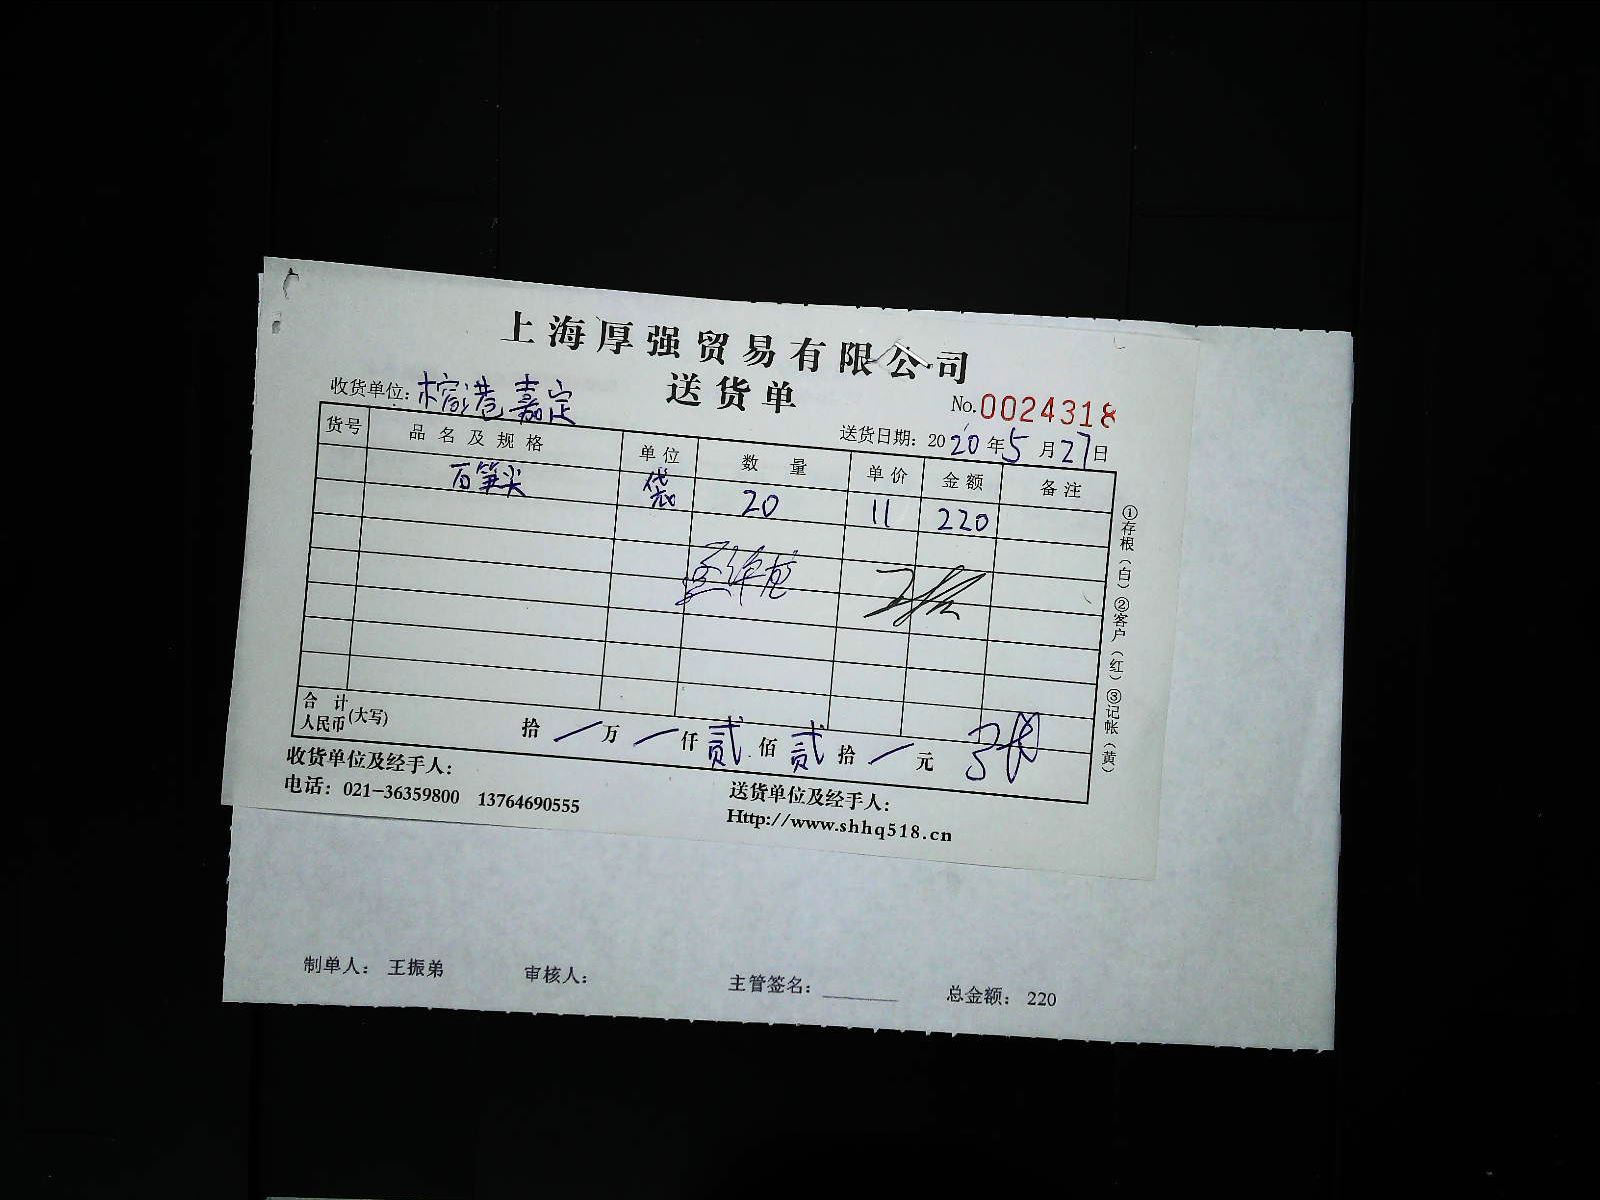 上海厚强贸易有限公司
送货单
收货单位: 榕港嘉定
No.0024318
送货日期: 2020年5月27日
货号 品名及规格 单位 数量 单价 金额 备注
石笋尖 袋 20 11 220
合计人民币(大写) 拾 万 仟 贰 佰 贰 拾 元
①存根(白)②客户(红)③记帐(黄)
收货单位及经手人:
送货单位及经手人:
电话: 021-36359800 13764690555
Http://www.shhq518.cn
制单人: 王振弟 审核人: 主管签名: ________ 总金额: 220